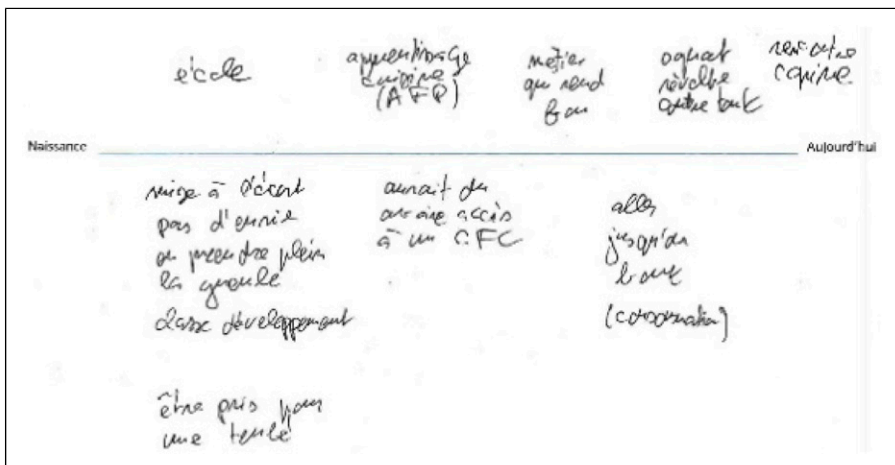 école
apprentissage
cuisine
(AFP)
métier
qui rend
fou
squat
révolte
contre tout
rencontre
copine
Naissance
Aujourd'hui
mise à l'écart
pas d'envie
en prendre plein
la gueule
classe développement
être pris pour
une
aurait dû
avoir accès
à un CFC
aller
jusqu'au
bout
(consommation)